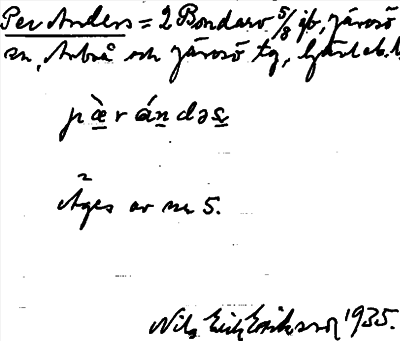 Per Anders = 2 Bondarv 5/8 jb, Järvsö
sn, Arbrå och Järvsö tg,
pæ̀rándəs
2 Äges av nr 5.
Nils Erik Eriksson 1935.